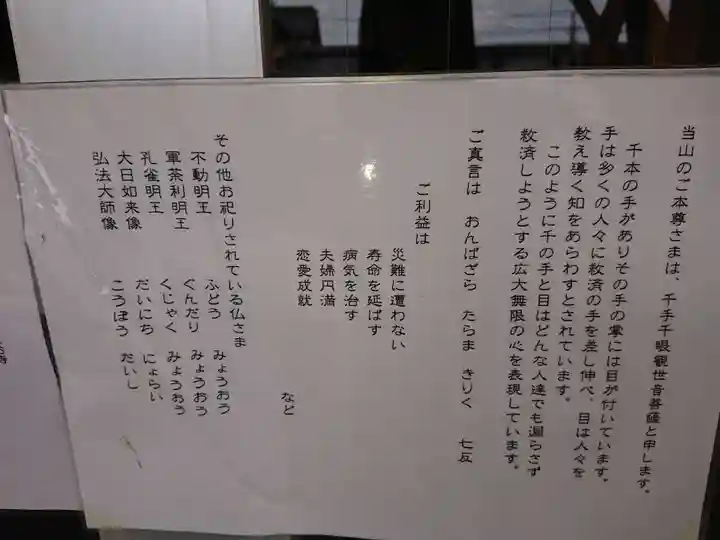 当山のご本尊さまは、千手千眼観世音菩薩と申します。
千本の手がありその手の掌には目が付いています。
手は多くの人々に救済の手を差し伸べ、目は人々を
教え導く知をあらわすとされています。
このように千の手と目はどんな人達でも漏らさず
救済しようとする広大無限の心を表現しています。
ご真言は おんばざら たらま きりく 七反
ご利益は
災難に遭わない
寿命を延ばす
病気を治す
夫婦円満
恋愛成就
など
その他お祀りされている仏さま
不動明王 ふどう みょうおう
軍荼利明王 ぐんだり みょうおう
孔雀明王 くじゃく みょうおう
大日如来像 だいにち にょらい
弘法大師像 こうぼう だいし